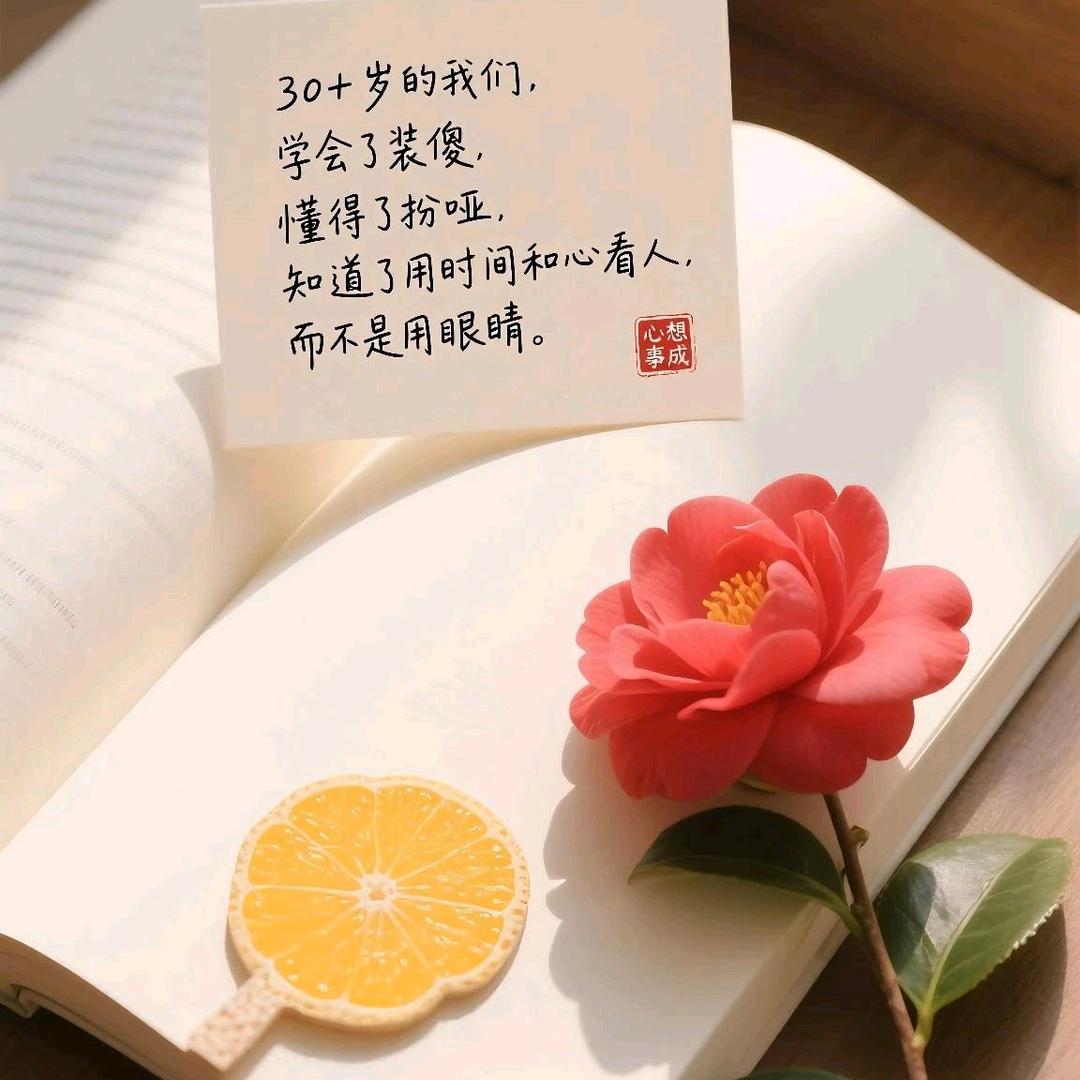 30+岁的我们，
学会了装傻，
懂得了扮哑，
知道了用时间和心看人，
而不是用眼睛。
心想事成